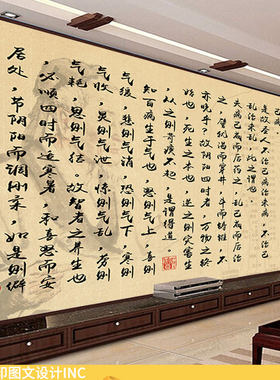 乱治未乱，此之谓也。
夫病已成而后药之，乱已成
之，譬犹渴而穿井，斗而铸锥，不
亦晚乎？故阴阳四时者，万物之终
始也，死生之本也，逆之则灾害生
从之则苛疾不起，是谓得道。
知百病生于气也，怒则气上，喜
则气缓，悲则气消，恐则气下，寒则
气收，炅则气泄，惊则气乱，劳则
气耗，思则气结。故智者之养生也
必顺四时而适寒暑，和喜怒而安
居处，节阴阳而调刚柔。如是则僻
印图文设计INC